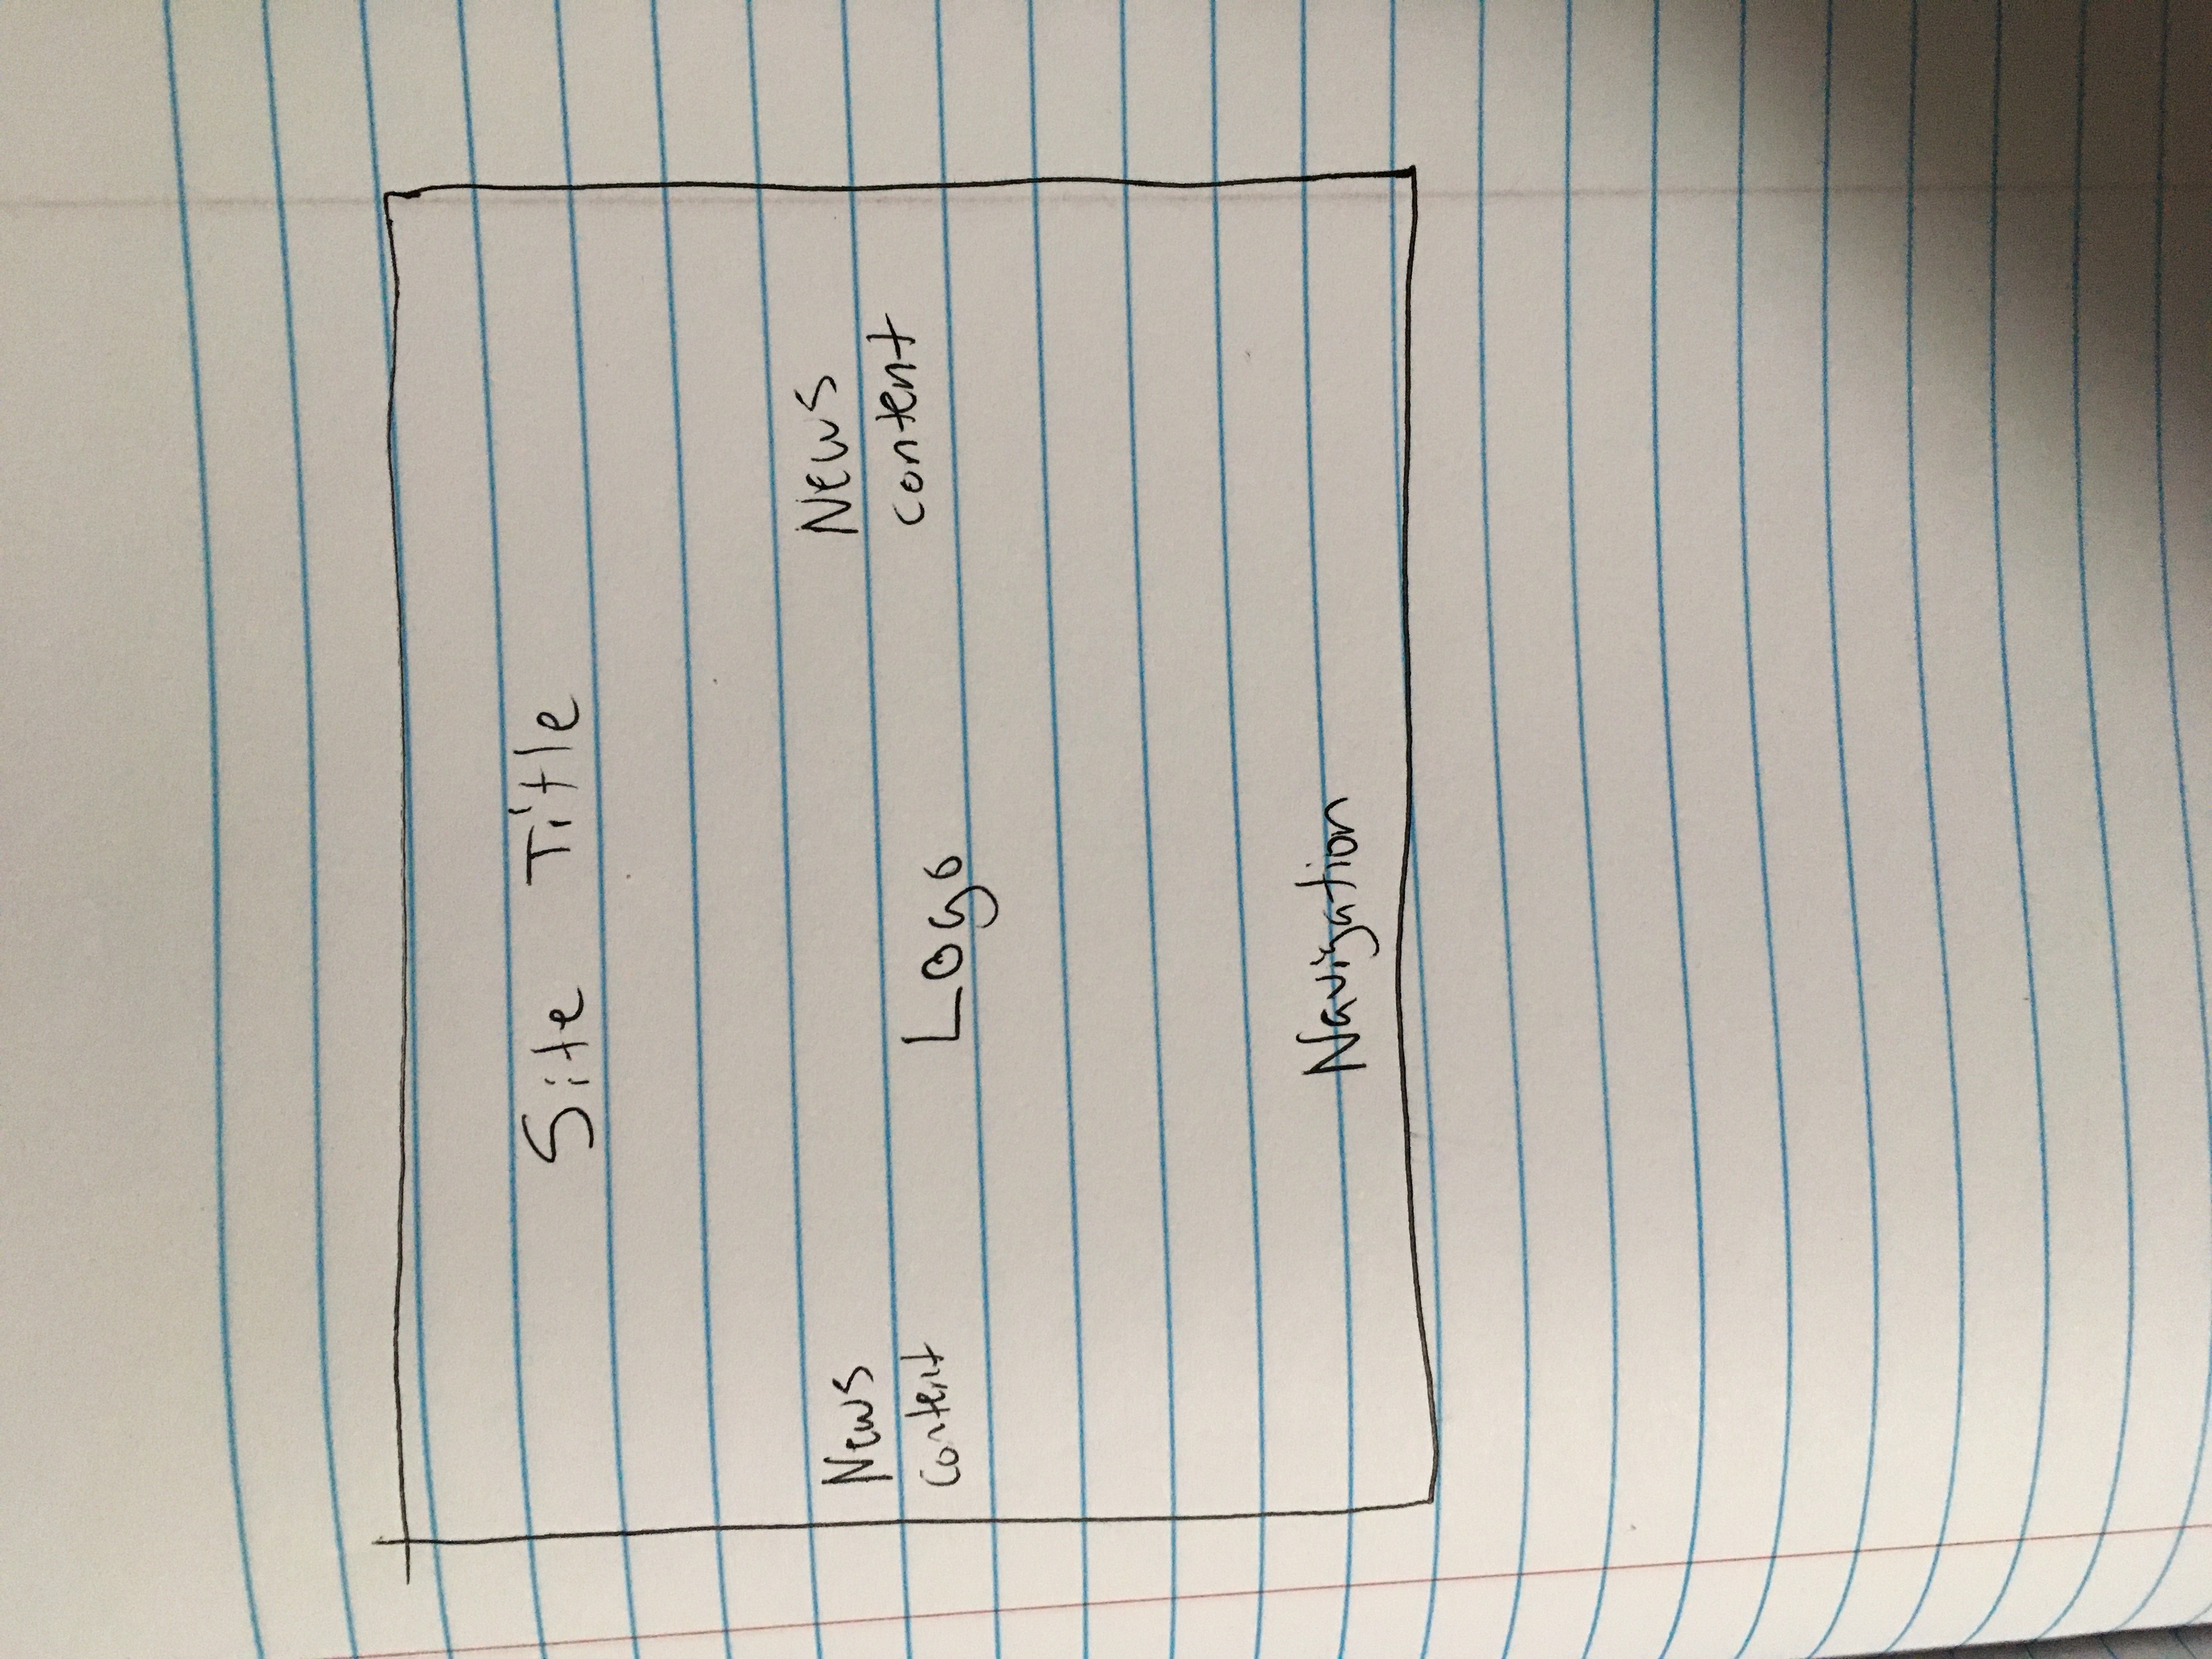 Site Title
News
content
Logo
News
content
Navigation